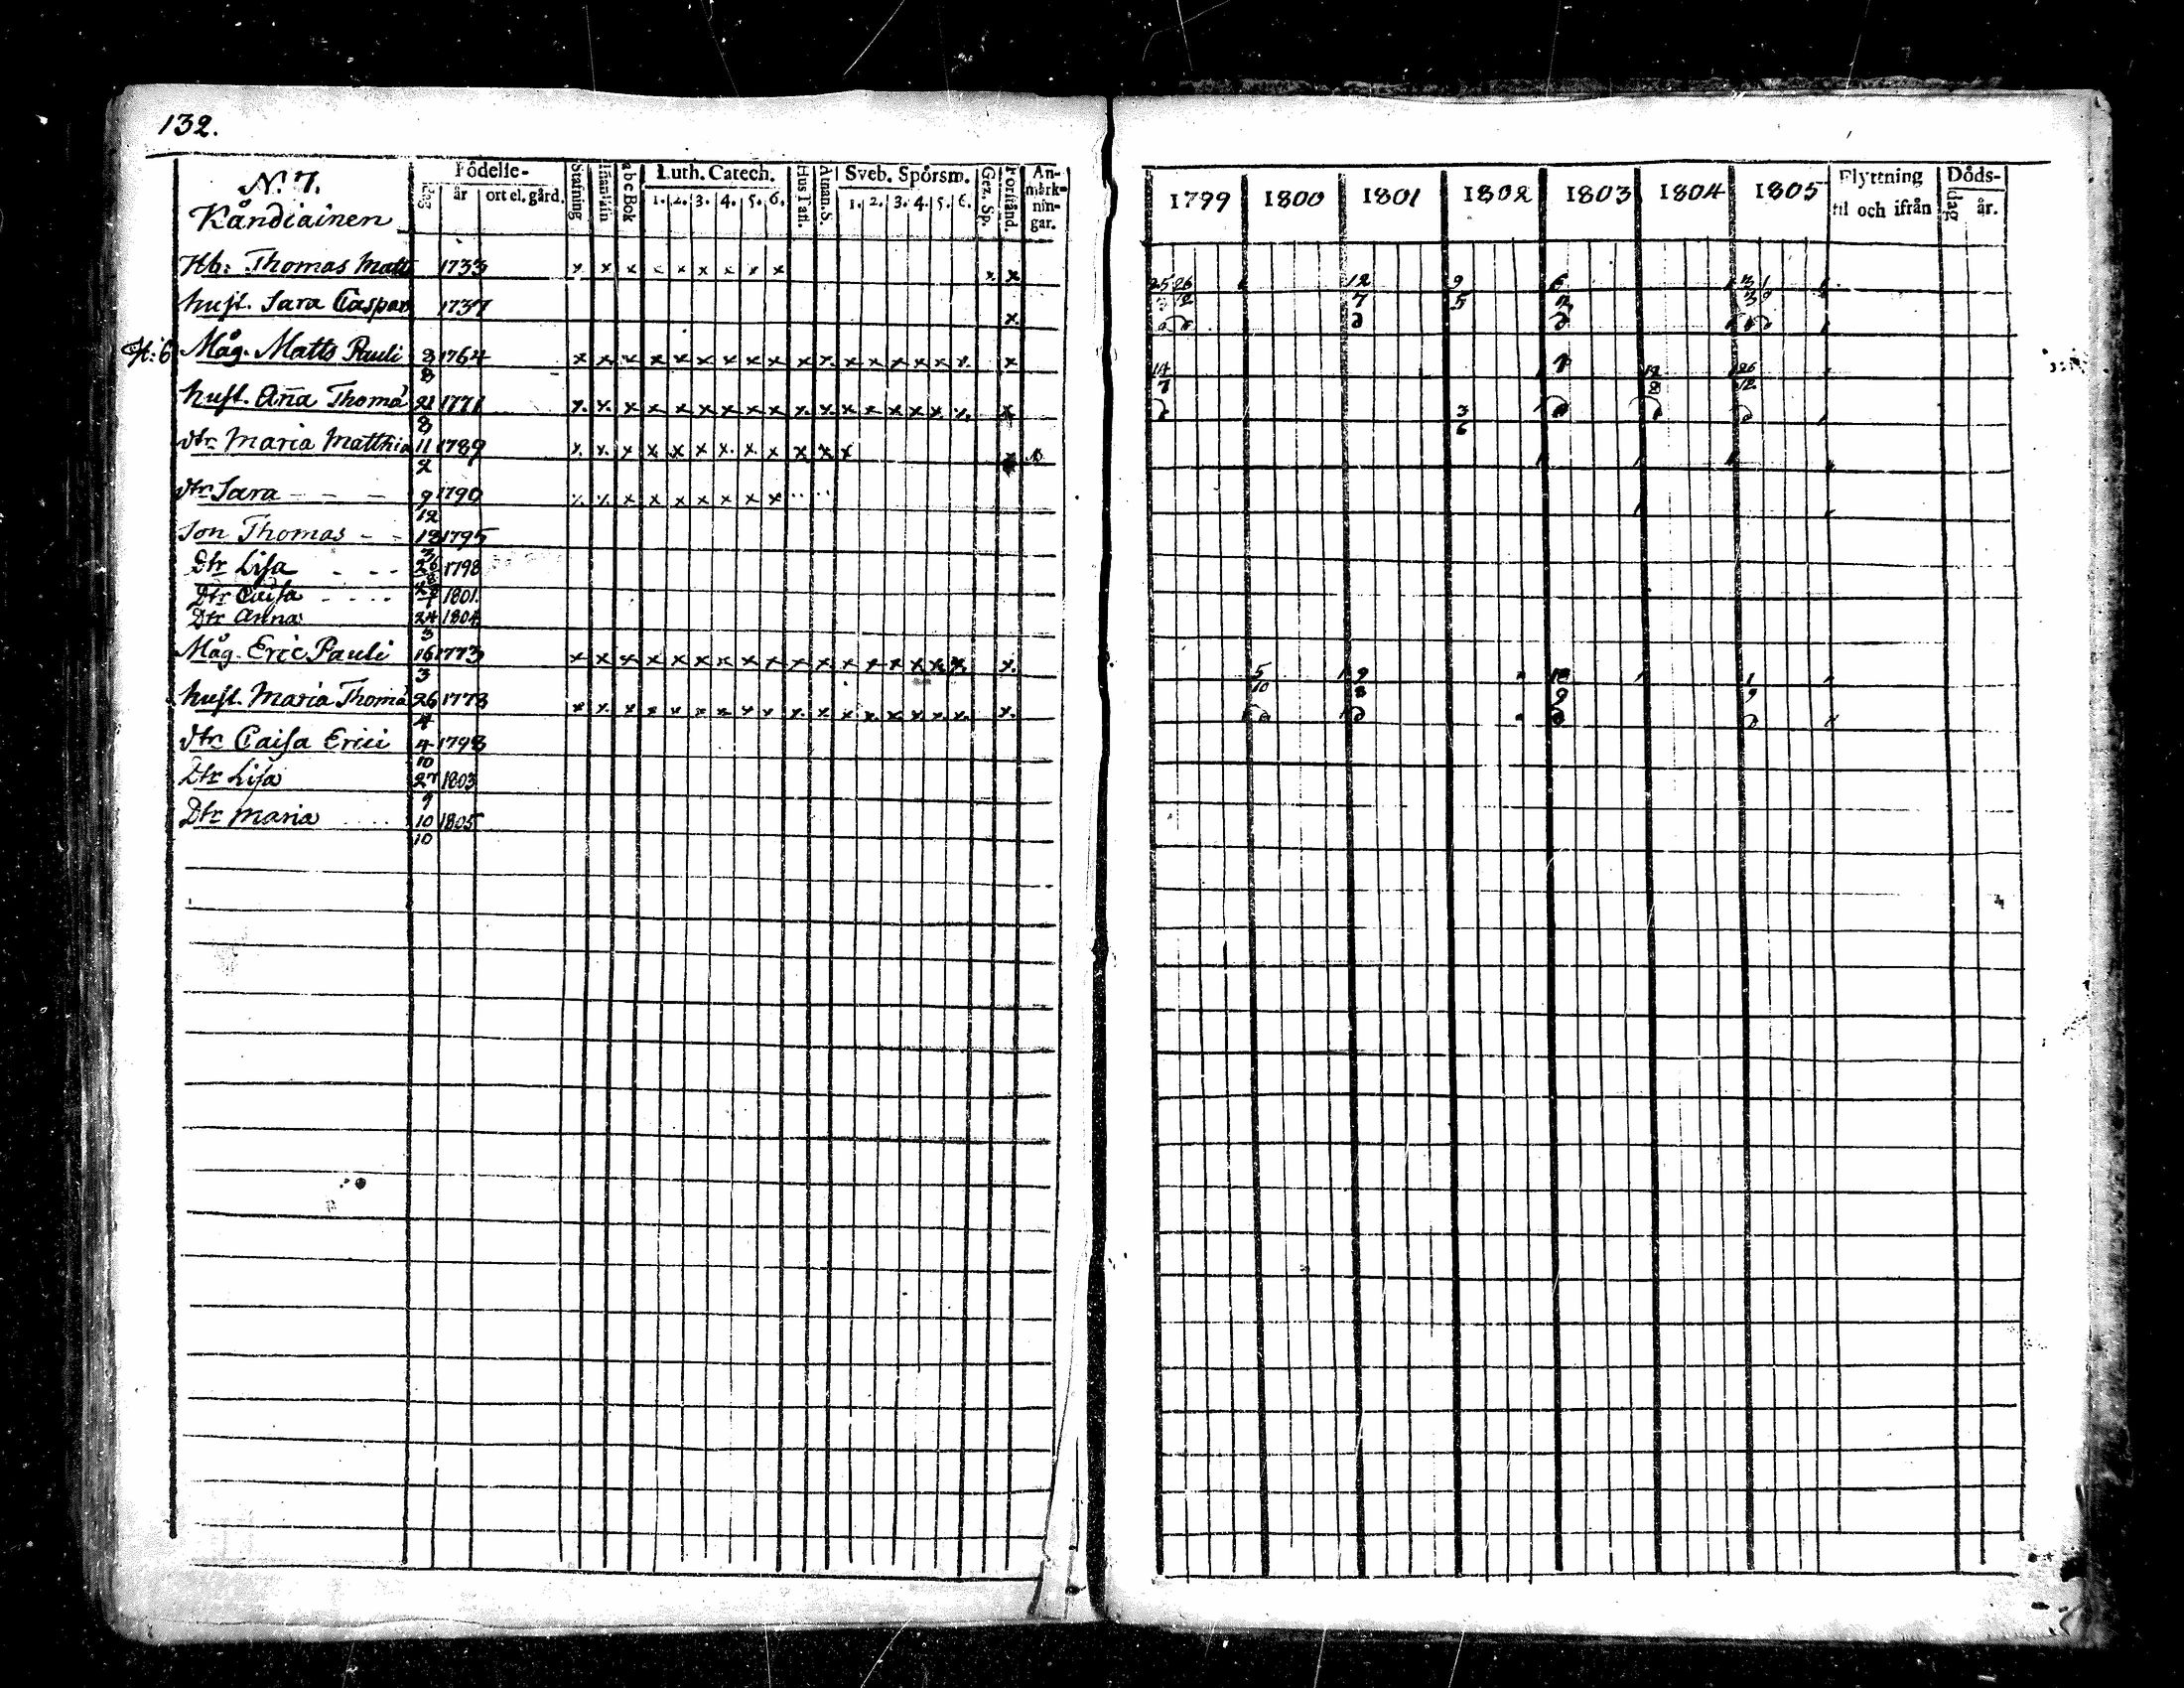 132.
N. 7.
Kåndiainen
Födelse-
dag år ort el. gård.
Stafning
Innanläs
abc Bok
Luth. Catech.
1. 2. 3. 4. 5. 6.
Hus Tafl.
Athan. S.
Sveb. Spörsm.
1. 2. 3. 4. 5. 6.
Gez. Sp.
Förstånd.
An-
märk-
nin-
gar.
Hb: Thomas Matts 1733 x x x x x x x x x x x
hust. Sara Caspari 1737 x
H:6 Måg. Matts Pauli 3/8 1764 x x x x x x x x x x x x x x x x x x
hust. Ana Thomæ 21/8 1771 x x x x x x x x x x x x x x x x x x
dtr Maria Matthiæ 11/2 1789 x x x x x x x x x x x x x
dtr Sara - - - 9/12 1790 x x x x x x x x x
Son Thomas - - 12/3 1795
Dtr Lisa - - - 26/8 1798
Dtr Caisa - - - - 1801.
Dtr Anna 24/3 1804
Måg. Eric Pauli 16/3 1773 x x x x x x x x x x x x x x x x x x
hust. Maria Thomæ 26/4 1773 x x x x x x x x x x x x x x x x x x
dtr Caisa Erici 4/10 1798
Dtr Lisa 27/9 1803
Dtr Maria .... 10/10 1805
1799 1800 1801 1802 1803 1804 1805
Flyttning
til och ifrån
Döds-
dag år.
25 26 12 9 6
7 5
14 12 26
7 8 12
3
6
5 9 18 1
10 8 9 9